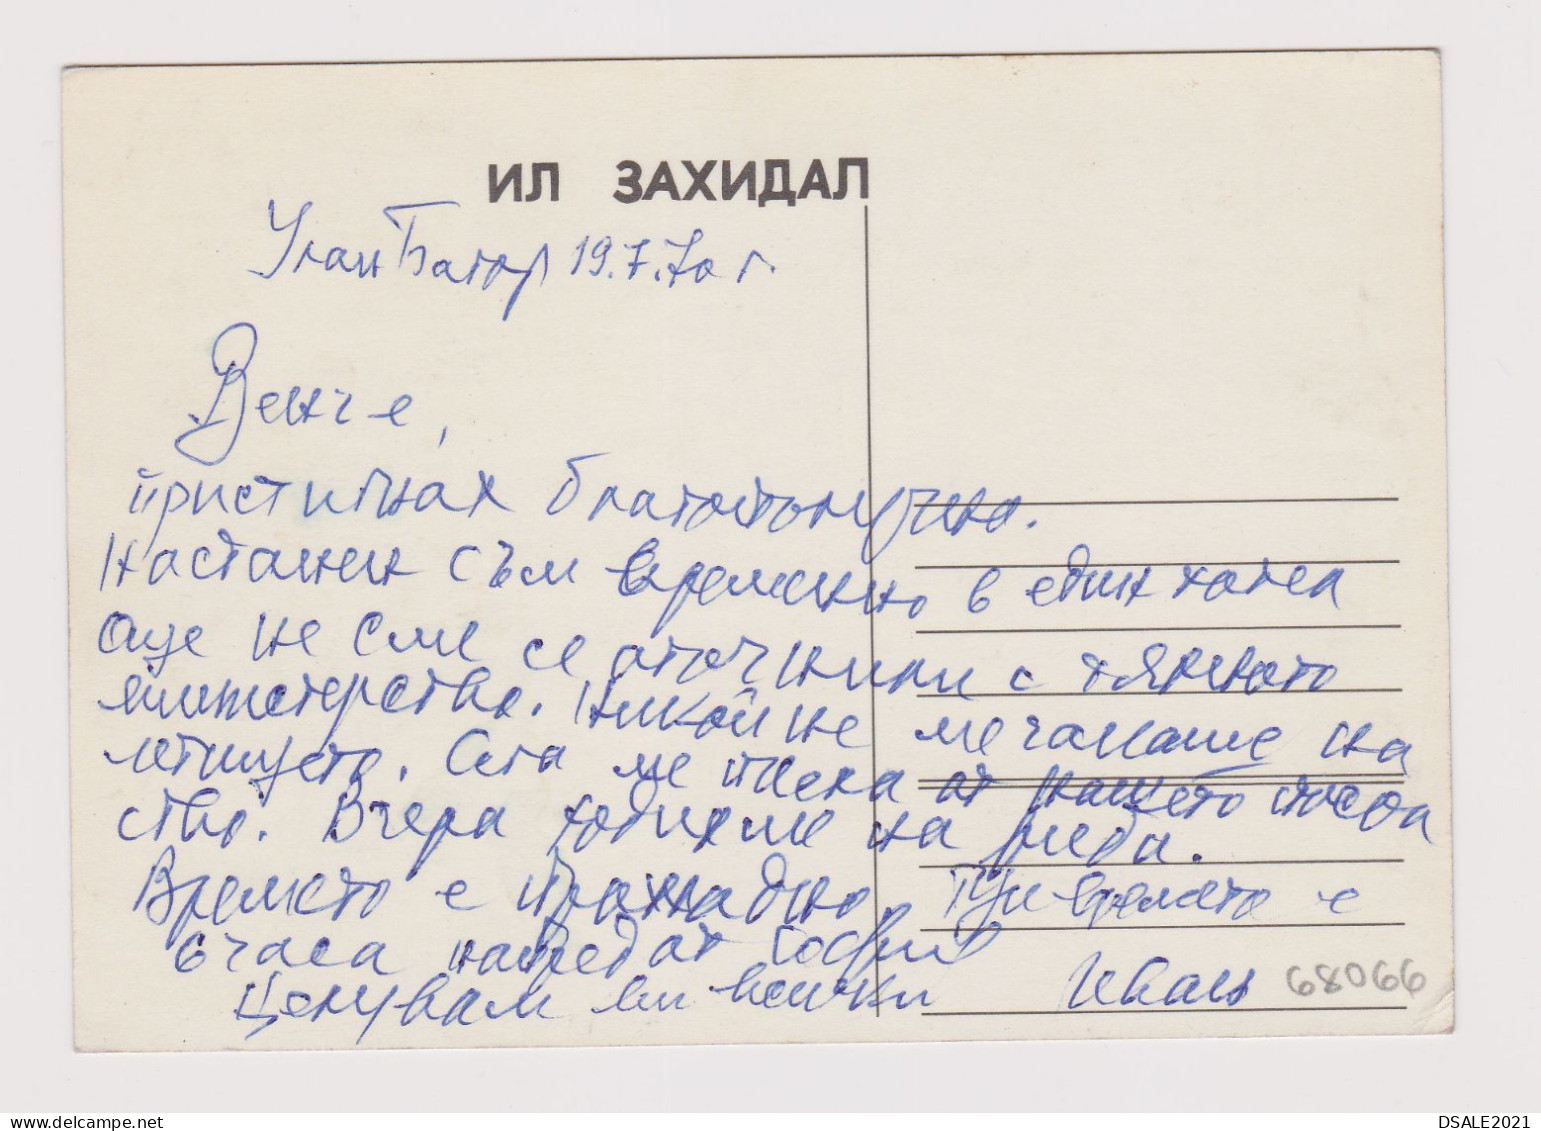 ИЛ ЗАХИДАЛ
Улан Батор 19.7.70 г.
Венче,
пристигнах благополучно.
Настанен съм временно в един хотел
още не сме се отчнили с тяхното
министерство. Никой не ме чакаше на
летището. Сега ме от нашето посол
ство. Вчера ходихме на риба.
Времето е прохладно. Тук времето е
6 часа напред от София
Целувам ви всички Иван 68066
DSALE2021